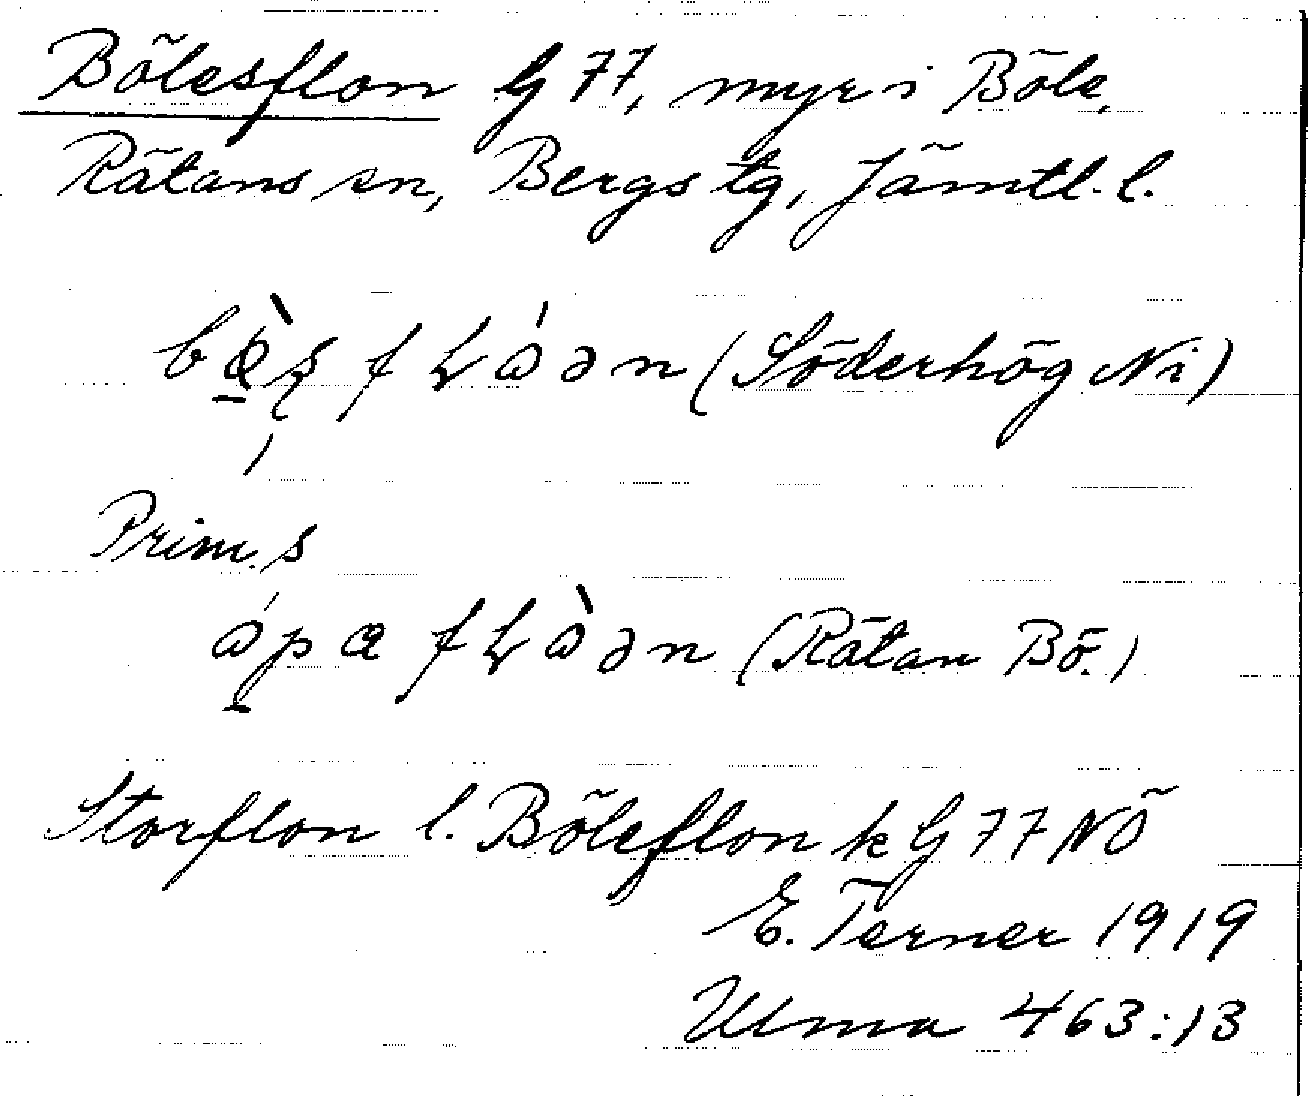 Bölesflon G 77, myr i Böle,
Rätans sn, Bergs tg, Jämtl. l.
(Söderhög Ni)
Prim. s
(Rätan Bö.)
Storflon l. Böleflon k G 77 NÖ
E. Terner 1919
Ulma 463:13